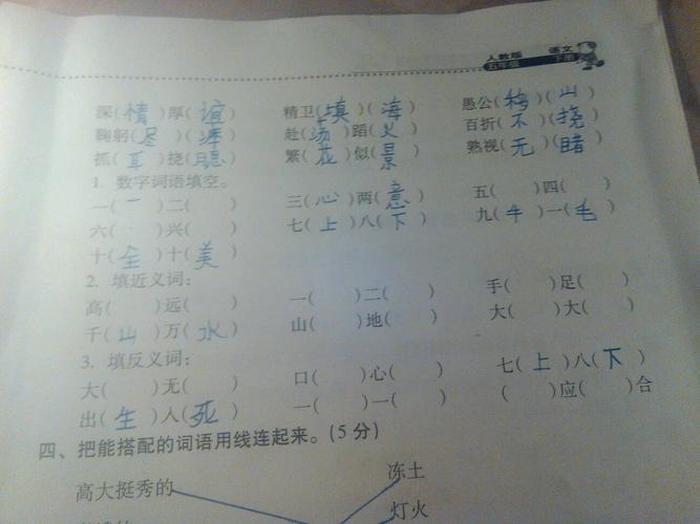 人教版 语文
五年级 下册
深(情)厚(谊) 精卫(填)(海) 愚公(移)(山)
鞠躬(尽)(瘁) 赴(汤)蹈(火) 百折(不)(挠)
抓(耳)挠(腮) 繁(花)似(景) 熟视(无)(睹)
1. 数字词语填空。
一( )二( ) 三(心)两(意) 五( )四( )
六( )兴( ) 七(上)八(下) 九(牛)一(毛)
十(全)十(美)
2. 填近义词:
高( )远( ) 一( )二( ) 手( )足( )
千(山)万(水) 山( )地( ) 大( )大( )
3. 填反义词:
大( )无( ) 口( )心( ) 七(上)八(下)
出(生)入(死) 一( )一( ) ( )应( )合
四、把能搭配的词语用线连起来。(5分)
高大挺秀的 冻土
灯火